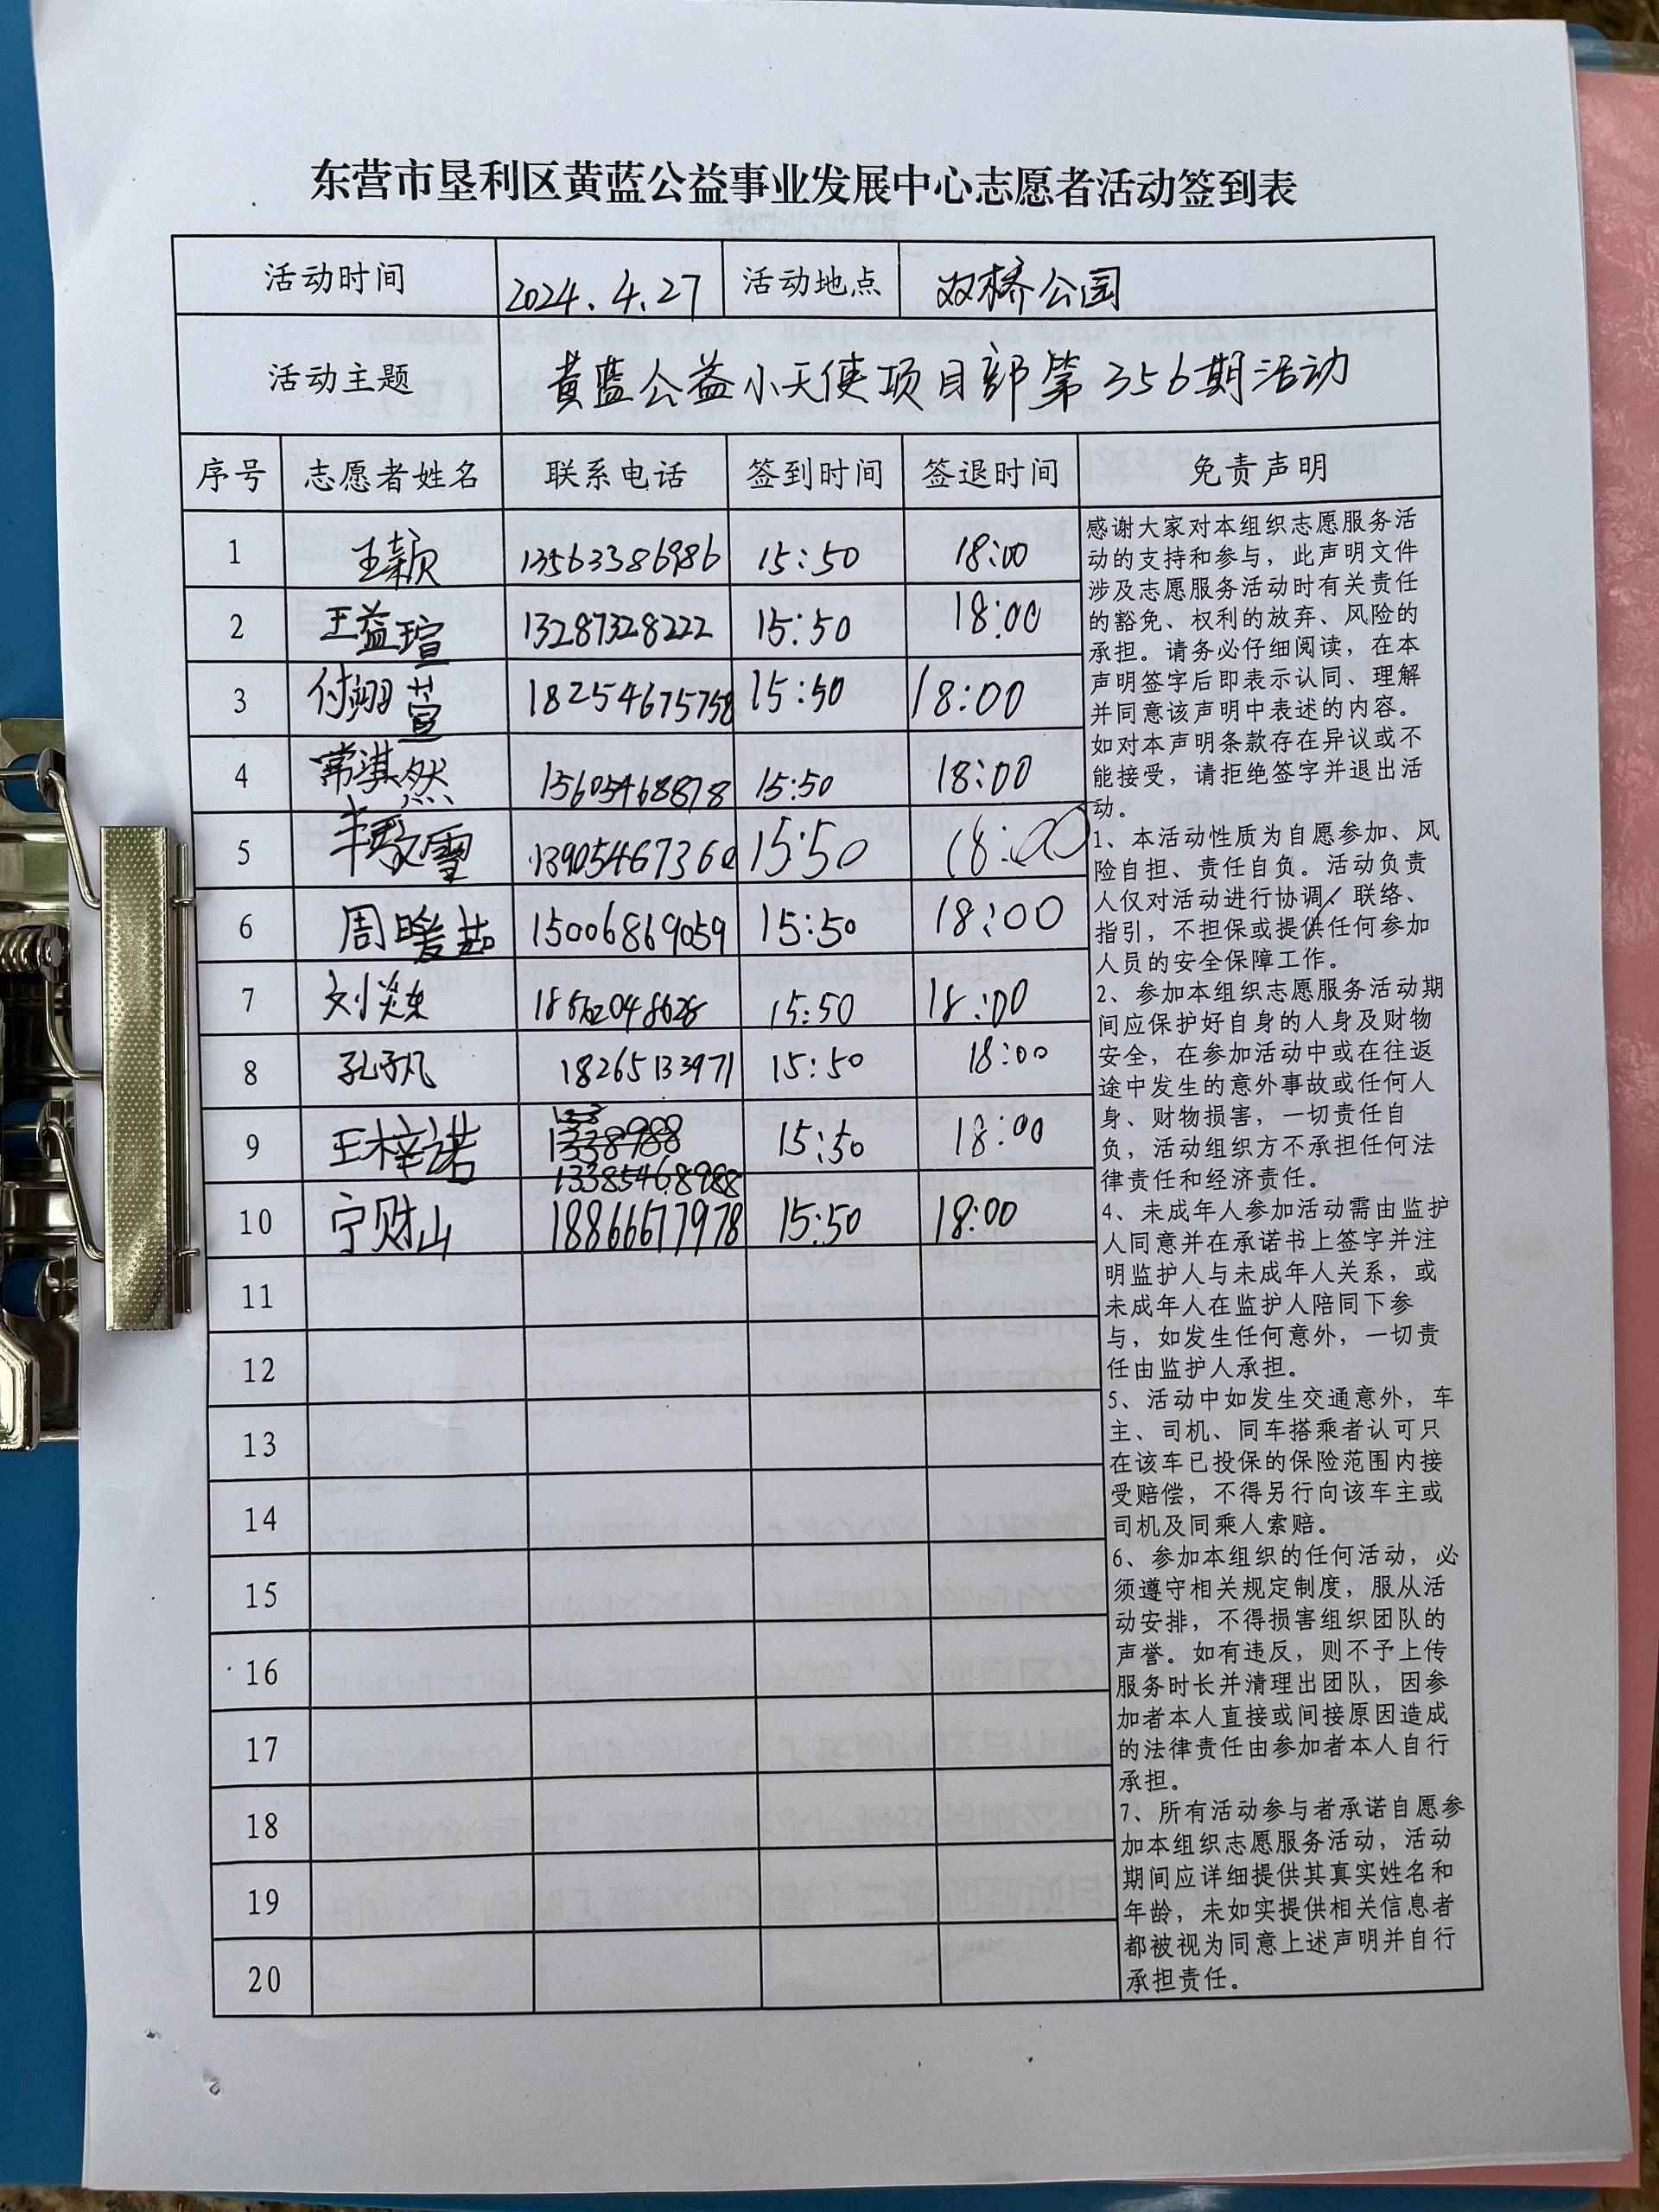 东营市垦利区黄蓝公益事业发展中心志愿者活动签到表
活动时间 2024.4.27 活动地点 双桥公园
活动主题 黄蓝公益小天使项目部第356期活动
序号 志愿者姓名 联系电话 签到时间 签退时间 免责声明
1 王颖 13563386986 15:50 18:00
2 王益瑄 13287328222 15:50 18:00
3 付翊萱 18254675758 15:50 18:00
4 常淇然 15605468878 15:50 18:00
5 15:50 18:00
6 周暖 15006869059 15:50 18:00
7 刘 15:50 18:00
8 孔子凡 18265133971 15:50 18:00
9 王梓诺 13385468988 15:50 18:00
10 宁财山 18866677978 15:50 18:00
11
12
13
14
15
16
17
18
19
20
感谢大家对本组织志愿服务活
动的支持和参与，此声明文件
涉及志愿服务活动时有关责任
的豁免、权利的放弃、风险的
承担。请务必仔细阅读，在本
声明签字后即表示认同、理解
并同意该声明中表述的内容。
如对本声明条款存在异议或不
能接受，请拒绝签字并退出活
动。
1、本活动性质为自愿参加、风
险自担、责任自负。活动负责
人仅对活动进行协调、联络、
指引，不担保或提供任何参加
人员的安全保障工作。
2、参加本组织志愿服务活动期
间应保护好自身的人身及财物
安全，在参加活动中或在往返
途中发生的意外事故或任何人
身、财物损害，一切责任自
负，活动组织方不承担任何法
律责任和经济责任。
4、未成年人参加活动需由监护
人同意并在承诺书上签字并注
明监护人与未成年人关系，或
未成年人在监护人陪同下参
与，如发生任何意外，一切责
任由监护人承担。
5、活动中如发生交通意外，车
主、司机、同车搭乘者认可只
在该车已投保的保险范围内接
受赔偿，不得另行向该车主或
司机及同乘人索赔。
6、参加本组织的任何活动，必
须遵守相关规定制度，服从活
动安排，不得损害组织团队的
声誉。如有违反，则不予上传
服务时长并清理出团队，因参
加者本人直接或间接原因造成
的法律责任由参加者本人自行
承担。
7、所有活动参与者承诺自愿参
加本组织志愿服务活动，活动
期间应详细提供其真实姓名和
年龄，未如实提供相关信息者
都被视为同意上述声明并自行
承担责任。